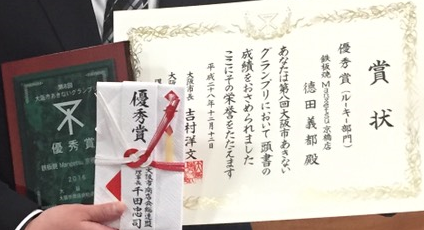 賞状
優秀賞(ルーキー部門)
鉄板焼 Maguettü京橋店
徳田義都 殿
あなたは第八回大阪市あきない
グランプリにおいて頭書の
成績をおさめられました
ここにその栄誉をたたえます
平成二十八年十二月十三日
大阪市長 吉村洋文
優秀賞
大阪市商店会総連盟
理事長 千田忠司
第8回
大阪市あきないグランプリ
優秀賞
鉄板焼
2016